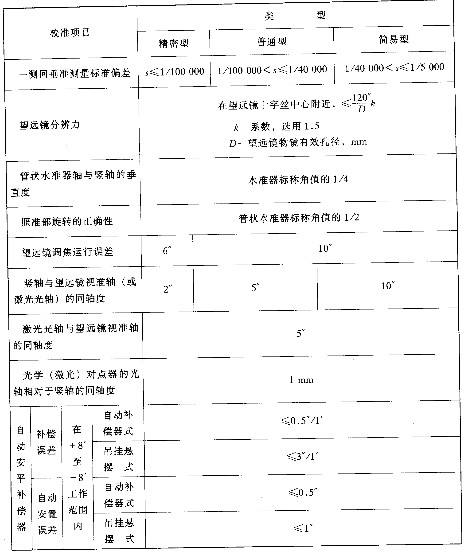 校准项目
类 型
精密型 普通型 简易型
一测回垂准测量标准偏差 s≤1/100 000 1/100 000<s≤1/40 000 1/40 000<s≤1/5 000
望远镜分辨力
在望远镜十字丝中心附近，≤120″/D k
k 系数，选用 1.5
D- 望远镜物镜有效孔径，mm
管状水准器轴与竖轴的垂
直度
水准器标称角值的 1/4
照准部旋转的正确性 管状水准器标称角值的 1/2
望远镜调焦运行误差 6″ 10″
竖轴与望远镜视准轴（或
激光光轴）的同轴度
2″ 5″ 10″
激光光轴与望远镜视准轴
的同轴度
5″
光学（激光）对点器的光
轴相对于竖轴的同轴度
1 mm
自动安平补偿器
补偿
误差
在
+8′
至
-8′
工作
范围
内
自动补
偿器式
≤0.5″/1′
吊挂悬
摆 式
≤3″/1′
自动
安置
误差
自动补
偿器式
≤0.5″
吊挂悬
摆 式
≤1″